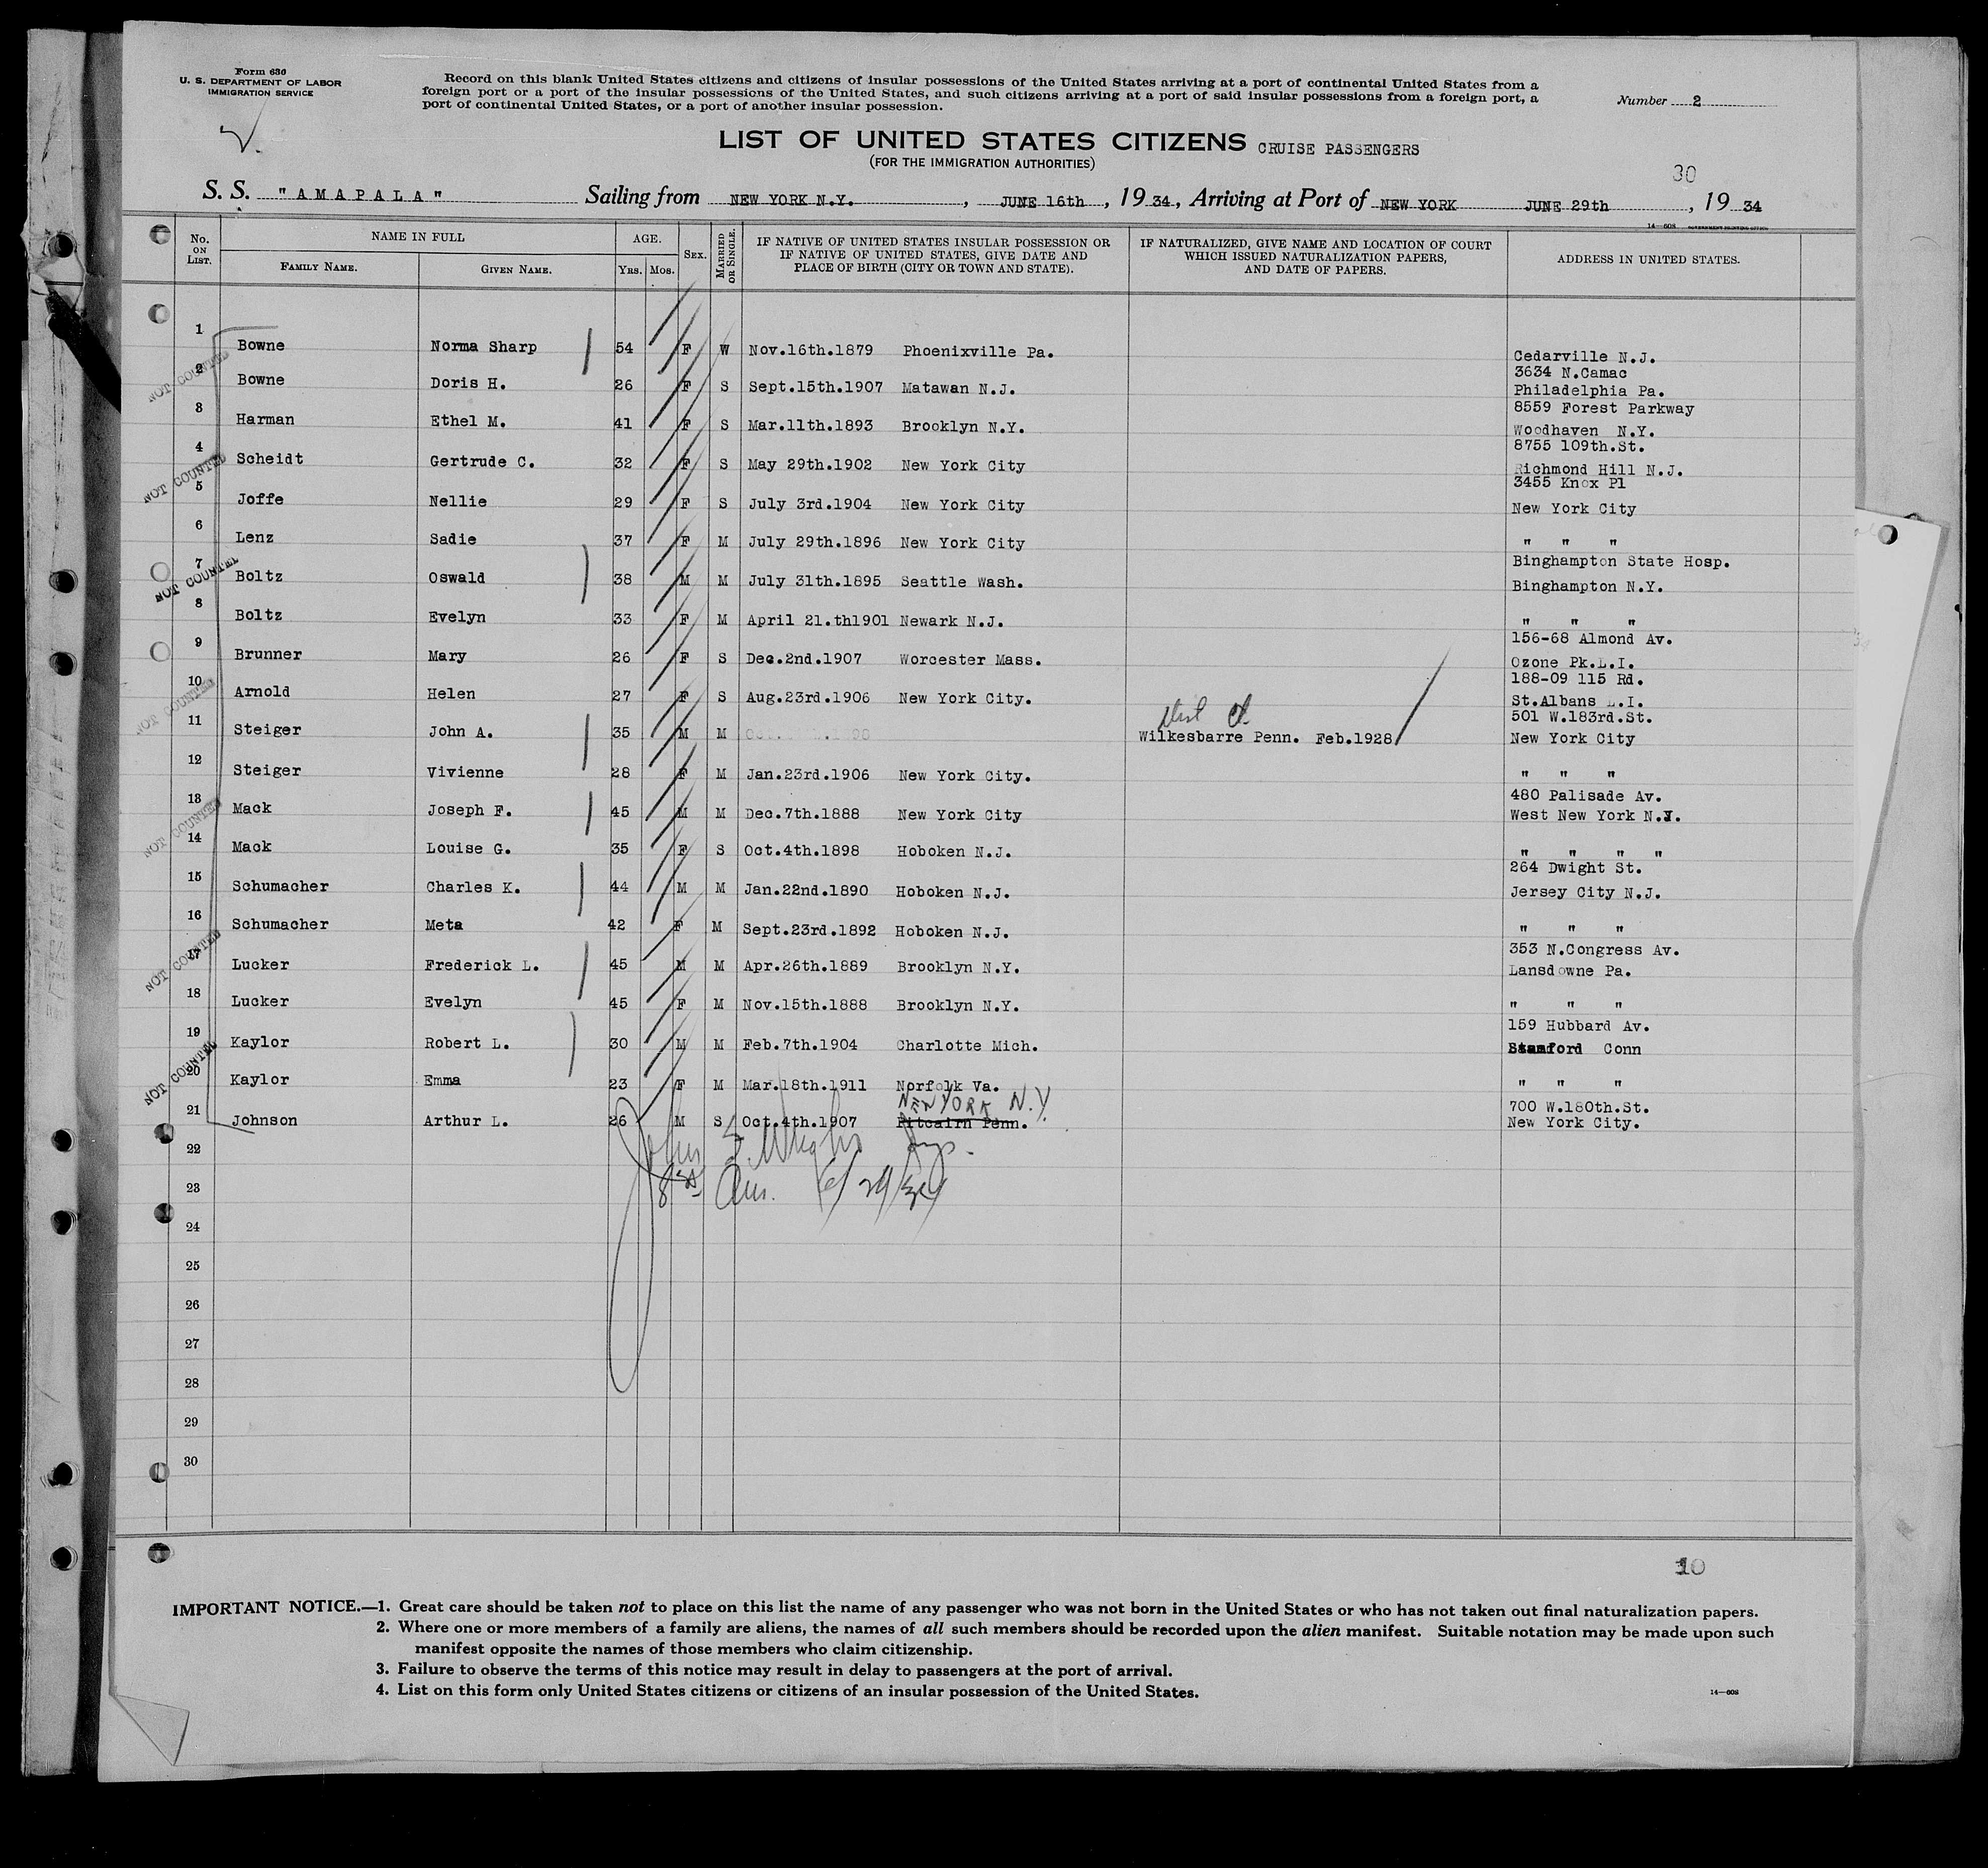 Form 630
U. S. DEPARTMENT OF LABOR
IMMIGRATION SERVICE
Record on this blank United States citizens and citizens of insular possessions of the United States arriving at a port of continental United States from a
foreign port or a port of the insular possessions of the United States, and such citizens arriving at a port of said insular possessions from a foreign port, a
port of continental United States, or a port of another insular possession.
Number 2
LIST OF UNITED STATES CITIZENS CRUISE PASSENGERS
(FOR THE IMMIGRATION AUTHORITIES)
30
S. S. "AMAPALA" Sailing from NEW YORK N.Y., JUNE 16th, 1934, Arriving at Port of NEW YORK JUNE 29th, 1934
14-608 GOVERNMENT PRINTING OFFICE
No. ON LIST. NAME IN FULL FAMILY NAME. GIVEN NAME. AGE. YRS. MOS. SEX. MARRIED OR SINGLE. IF NATIVE OF UNITED STATES INSULAR POSSESSION OR IF NATIVE OF UNITED STATES, GIVE DATE AND PLACE OF BIRTH (CITY OR TOWN AND STATE). IF NATURALIZED, GIVE NAME AND LOCATION OF COURT WHICH ISSUED NATURALIZATION PAPERS, AND DATE OF PAPERS. ADDRESS IN UNITED STATES.
1 Bowne Norma Sharp 54 F W Nov.16th.1879 Phoenixville Pa. Cedarville N.J.
NOT COUNTED
3634 N.Camac
2 Bowne Doris H. 26 F S Sept.15th.1907 Matawan N.J. Philadelphia Pa.
8559 Forest Parkway
3 Harman Ethel M. 41 F S Mar.11th.1893 Brooklyn N.Y. Woodhaven N.Y.
8755 109th.St.
4 Scheidt Gertrude C. 32 F S May 29th.1902 New York City Richmond Hill N.J.
NOT COUNTED
3455 Knox Pl
5 Joffe Nellie 29 F S July 3rd.1904 New York City New York City
6 Lenz Sadie 37 F M July 29th.1896 New York City " " "
Binghampton State Hosp.
7 Boltz Oswald 38 M M July 31th.1895 Seattle Wash. Binghampton N.Y.
NOT COUNTED
8 Boltz Evelyn 33 F M April 21.th1901 Newark N.J. " " "
156-68 Almond Av.
9 Brunner Mary 26 F S Dec.2nd.1907 Worcester Mass. Ozone Pk.L.I.
188-09 115 Rd.
10 Arnold Helen 27 F S Aug.23rd.1906 New York City. St.Albans L.I.
NOT COUNTED
501 W.183rd.St.
11 Steiger John A. 35 M M Wilkesbarre Penn. Feb.1928 New York City
12 Steiger Vivienne 28 F M Jan.23rd.1906 New York City. " " "
480 Palisade Av.
13 Mack Joseph F. 45 M M Dec.7th.1888 New York City West New York N.J.
NOT COUNTED
14 Mack Louise G. 35 F S Oct.4th.1898 Hoboken N.J. " " " "
264 Dwight St.
15 Schumacher Charles K. 44 M M Jan.22nd.1890 Hoboken N.J. Jersey City N.J.
16 Schumacher Meta 42 F M Sept.23rd.1892 Hoboken N.J. " " "
NOT COUNTED
353 N.Congress Av.
17 Lucker Frederick L. 45 M M Apr.26th.1889 Brooklyn N.Y. Lansdowne Pa.
18 Lucker Evelyn 45 F M Nov.15th.1888 Brooklyn N.Y. " " "
159 Hubbard Av.
19 Kaylor Robert L. 30 M M Feb.7th.1904 Charlotte Mich. Stamford Conn
NOT COUNTED
20 Kaylor Emma 23 F M Mar.18th.1911 Norfolk Va. " " "
NEW YORK N.Y.
700 W.180th.St.
21 Johnson Arthur L. 26 M S Oct.4th.1907 Pitcairn Penn. New York City.
22
6/29/34
23
24
25
26
27
28
29
30
10
IMPORTANT NOTICE.—1. Great care should be taken not to place on this list the name of any passenger who was not born in the United States or who has not taken out final naturalization papers.
2. Where one or more members of a family are aliens, the names of all such members should be recorded upon the alien manifest. Suitable notation may be made upon such
manifest opposite the names of those members who claim citizenship.
3. Failure to observe the terms of this notice may result in delay to passengers at the port of arrival.
4. List on this form only United States citizens or citizens of an insular possession of the United States.
14-608